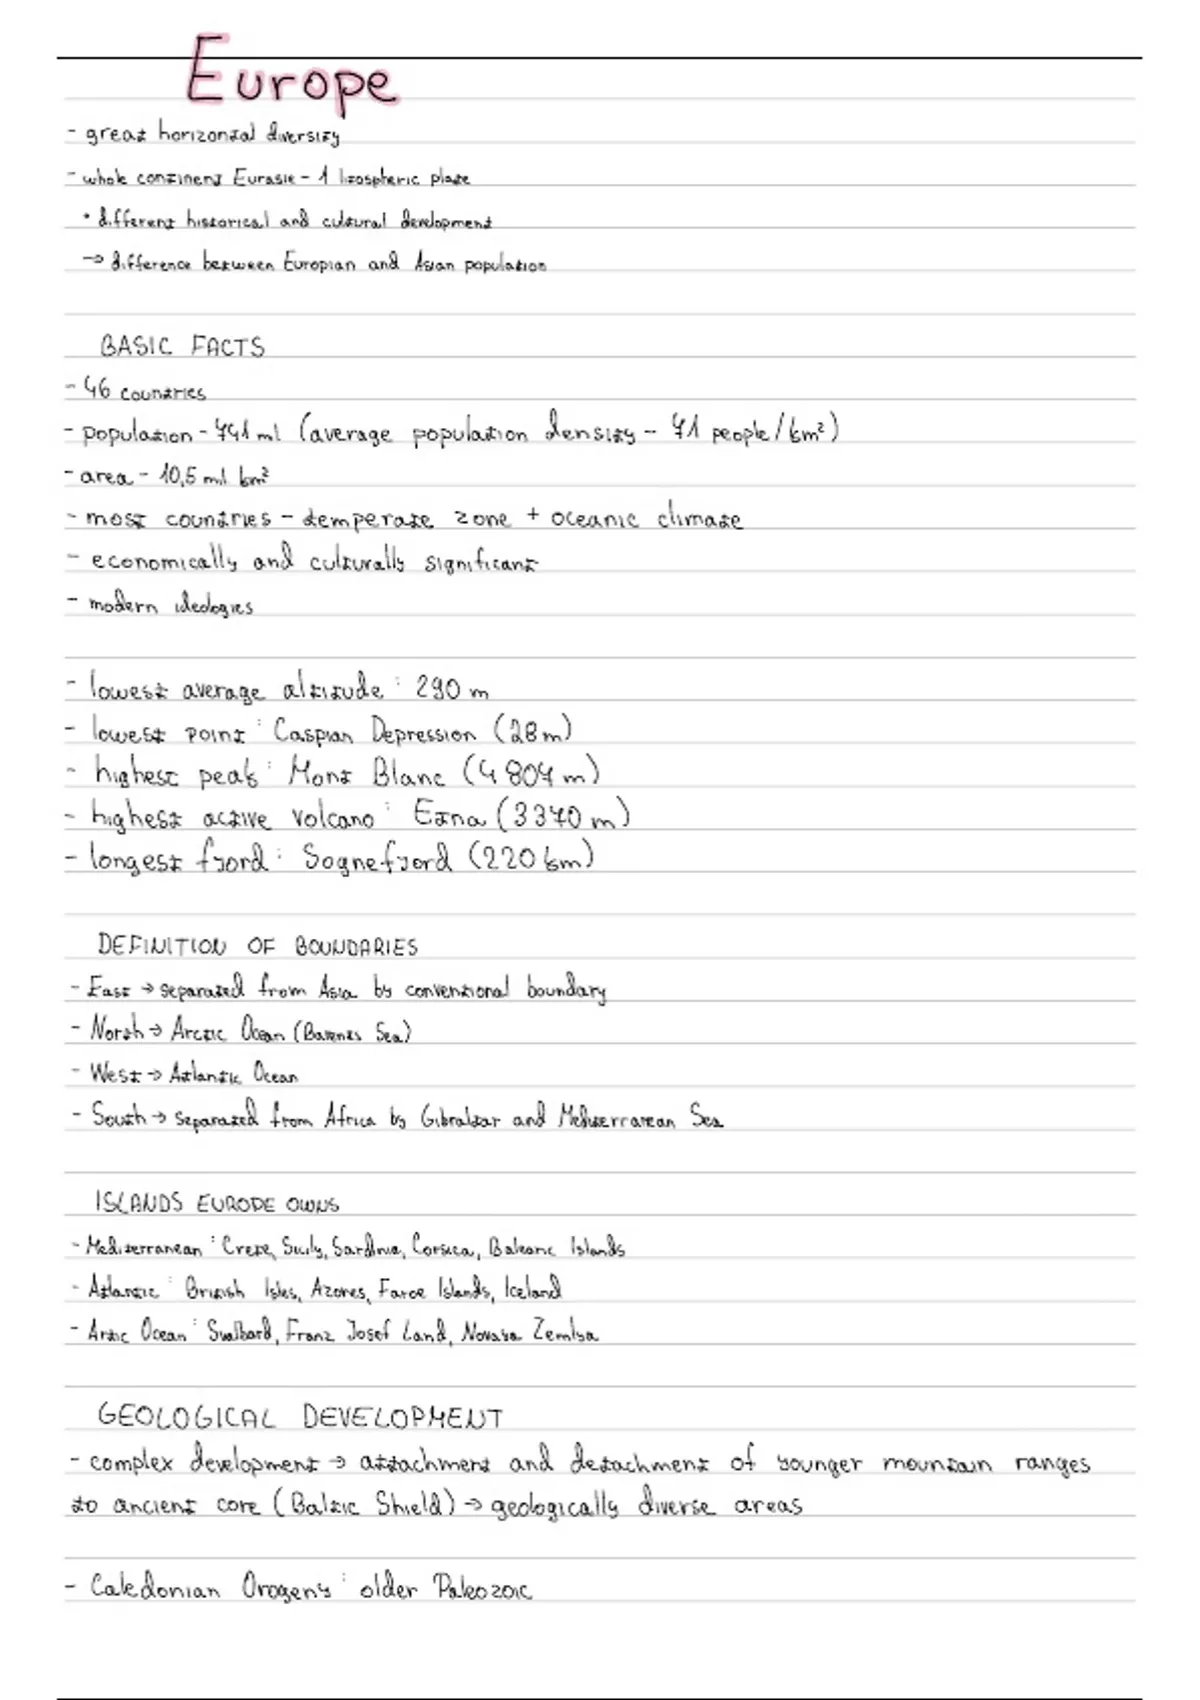 Europe
- great horizontal diversity
- whole continent Eurasie - 1 litospheric plate
• different historical and cultural development
→ difference between Europian and Asian population
BASIC FACTS
- 46 countries
- population - 741 ml (average population density - 71 people/km²)
- area - 10,5 mil km²
- most countries - temperate zone + oceanic climate
- economically and culturally significant
- modern ideologies
- lowest average altitude: 290 m
- lowest point: Caspian Depression (28m)
- highest peak: Mont Blanc (4 804 m)
- highest active volcano: Etna (3370 m)
- longest fjord: Sognefjord (220 km)
DEFINITION OF BOUNDARIES
- East → separated from Asia by conventional boundary
- North → Arctic Ocean (Barents Sea)
- West → Atlantic Ocean
- South → separated from Africa by Gibraltar and Mediterranean Sea
ISLANDS EUROPE OWNS
- Mediterranean: Crete, Sicily, Sardinia, Corsica, Balearic Islands
- Atlantic: British Isles, Azores, Faroe Islands, Iceland
- Artic Ocean: Svalbard, Franz Josef Land, Novaya Zemlya
GEOLOGICAL DEVELOPMENT
- complex development → attachment and detachment of younger mountain ranges
to ancient core (Baltic Shield) → geologically diverse areas
- Caledonian Orogeny: older Paleozoic